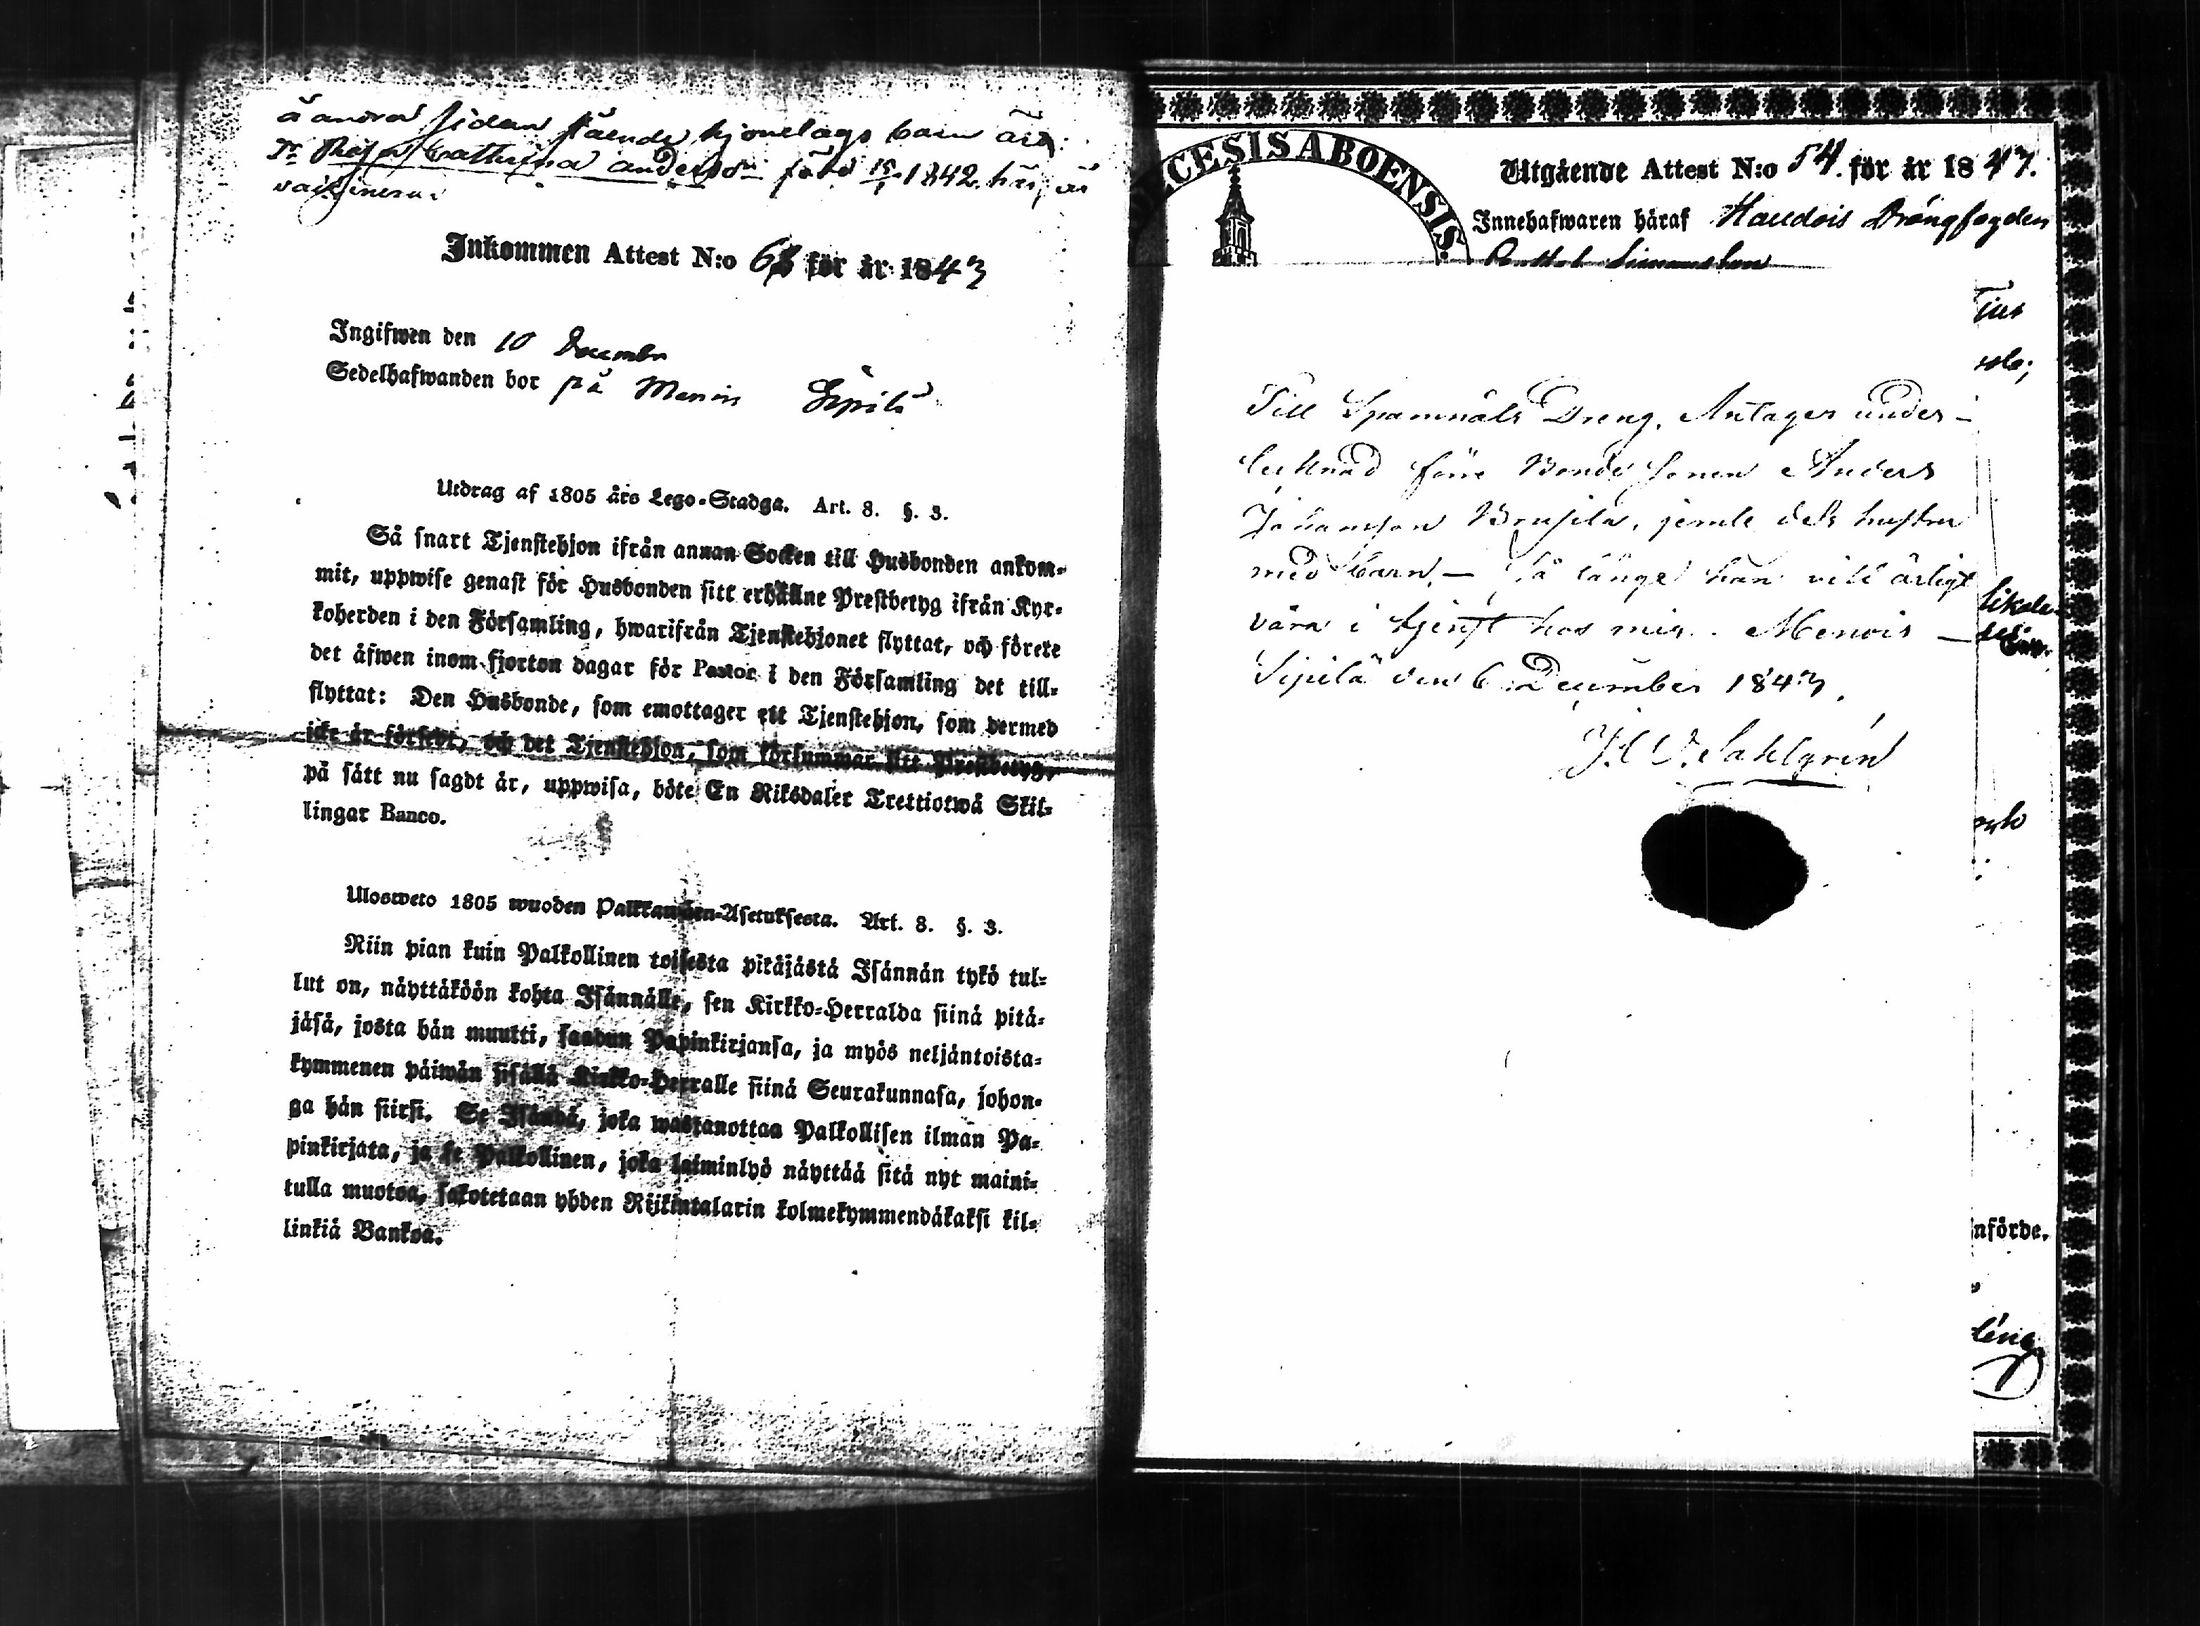 å andra sidan stående hjonelags barn äro:
Dr Rosa Cathrina Andersdr född 15/1 1842. här, är
vaccinerad
Inkommen Attest N:o 63 för år 1843
Ingifwen den 10 December
Sedelhafwanden bor på Menois Sipilä
Utdrag af 1805 års Lego-Stadga. Art. 8. §. 3.
Så snart Tjenstehjon ifrån annan Socken till Husbonden ankom-
mit, uppwise genast för Husbonden sitt erhållne Prestbetyg ifrån Kyr-
koherden i den Församling, hwarifrån Tjenstehjonet flyttat, och förete
det äfwen inom fjorton dagar för Pastor i den Församling det till-
flyttat: Den Husbonde, som emottager ett Tjenstehjon, som dermed
icke är försedt, och det Tjenstehjon, som försummar sitt Prestbetyg,
på sätt nu sagdt är, uppwisa, böte En Riksdaler Trettiotwå Skil-
lingar Banco.
Ulosweto 1805 wuoden Palkkauksen-Asetuksesta. Art. 8. §. 3.
Niin pian kuin Palkollinen toisesta pitäjästä Isännän tykö tul-
lut on, näyttäköön kohta Isännälle, sen Kirkko-Herralda siinä pitä-
jäsä, josta hän muutti, saadun Papinkirjansa, ja myös neljäntoista-
kymmenen päiwän sisällä Kirkko-Herralle siinä Seurakunnasa, johon-
ga hän siirsi. Se Isändä, joka wastanottaa Palkollisen ilman Pa-
pinkirjata, ja se Palkollinen, joka laiminlyö näyttää sitä nyt maini-
tulla muotoa, sakotetaan yhden Rijkintalarin kolmekymmendäkaksi kil-
linkiä Bankoa.
CESIS ABOENSIS.
Utgående Attest N:o 54. för år 1843.
Innehafwaren häraf Haudois Drängfogden
Simonsson
Till Spanmåls Dreng, Antages under-
tecknad förre Bonde sonen Anders
Johansson Brusila, jemte dess hustru
med Barn, — så länge han vill ärligt
vara i tjenst hos mig. Menois —
Sipilä den 6 December 1843.
J. C. V. Sahlgrén
nförde.